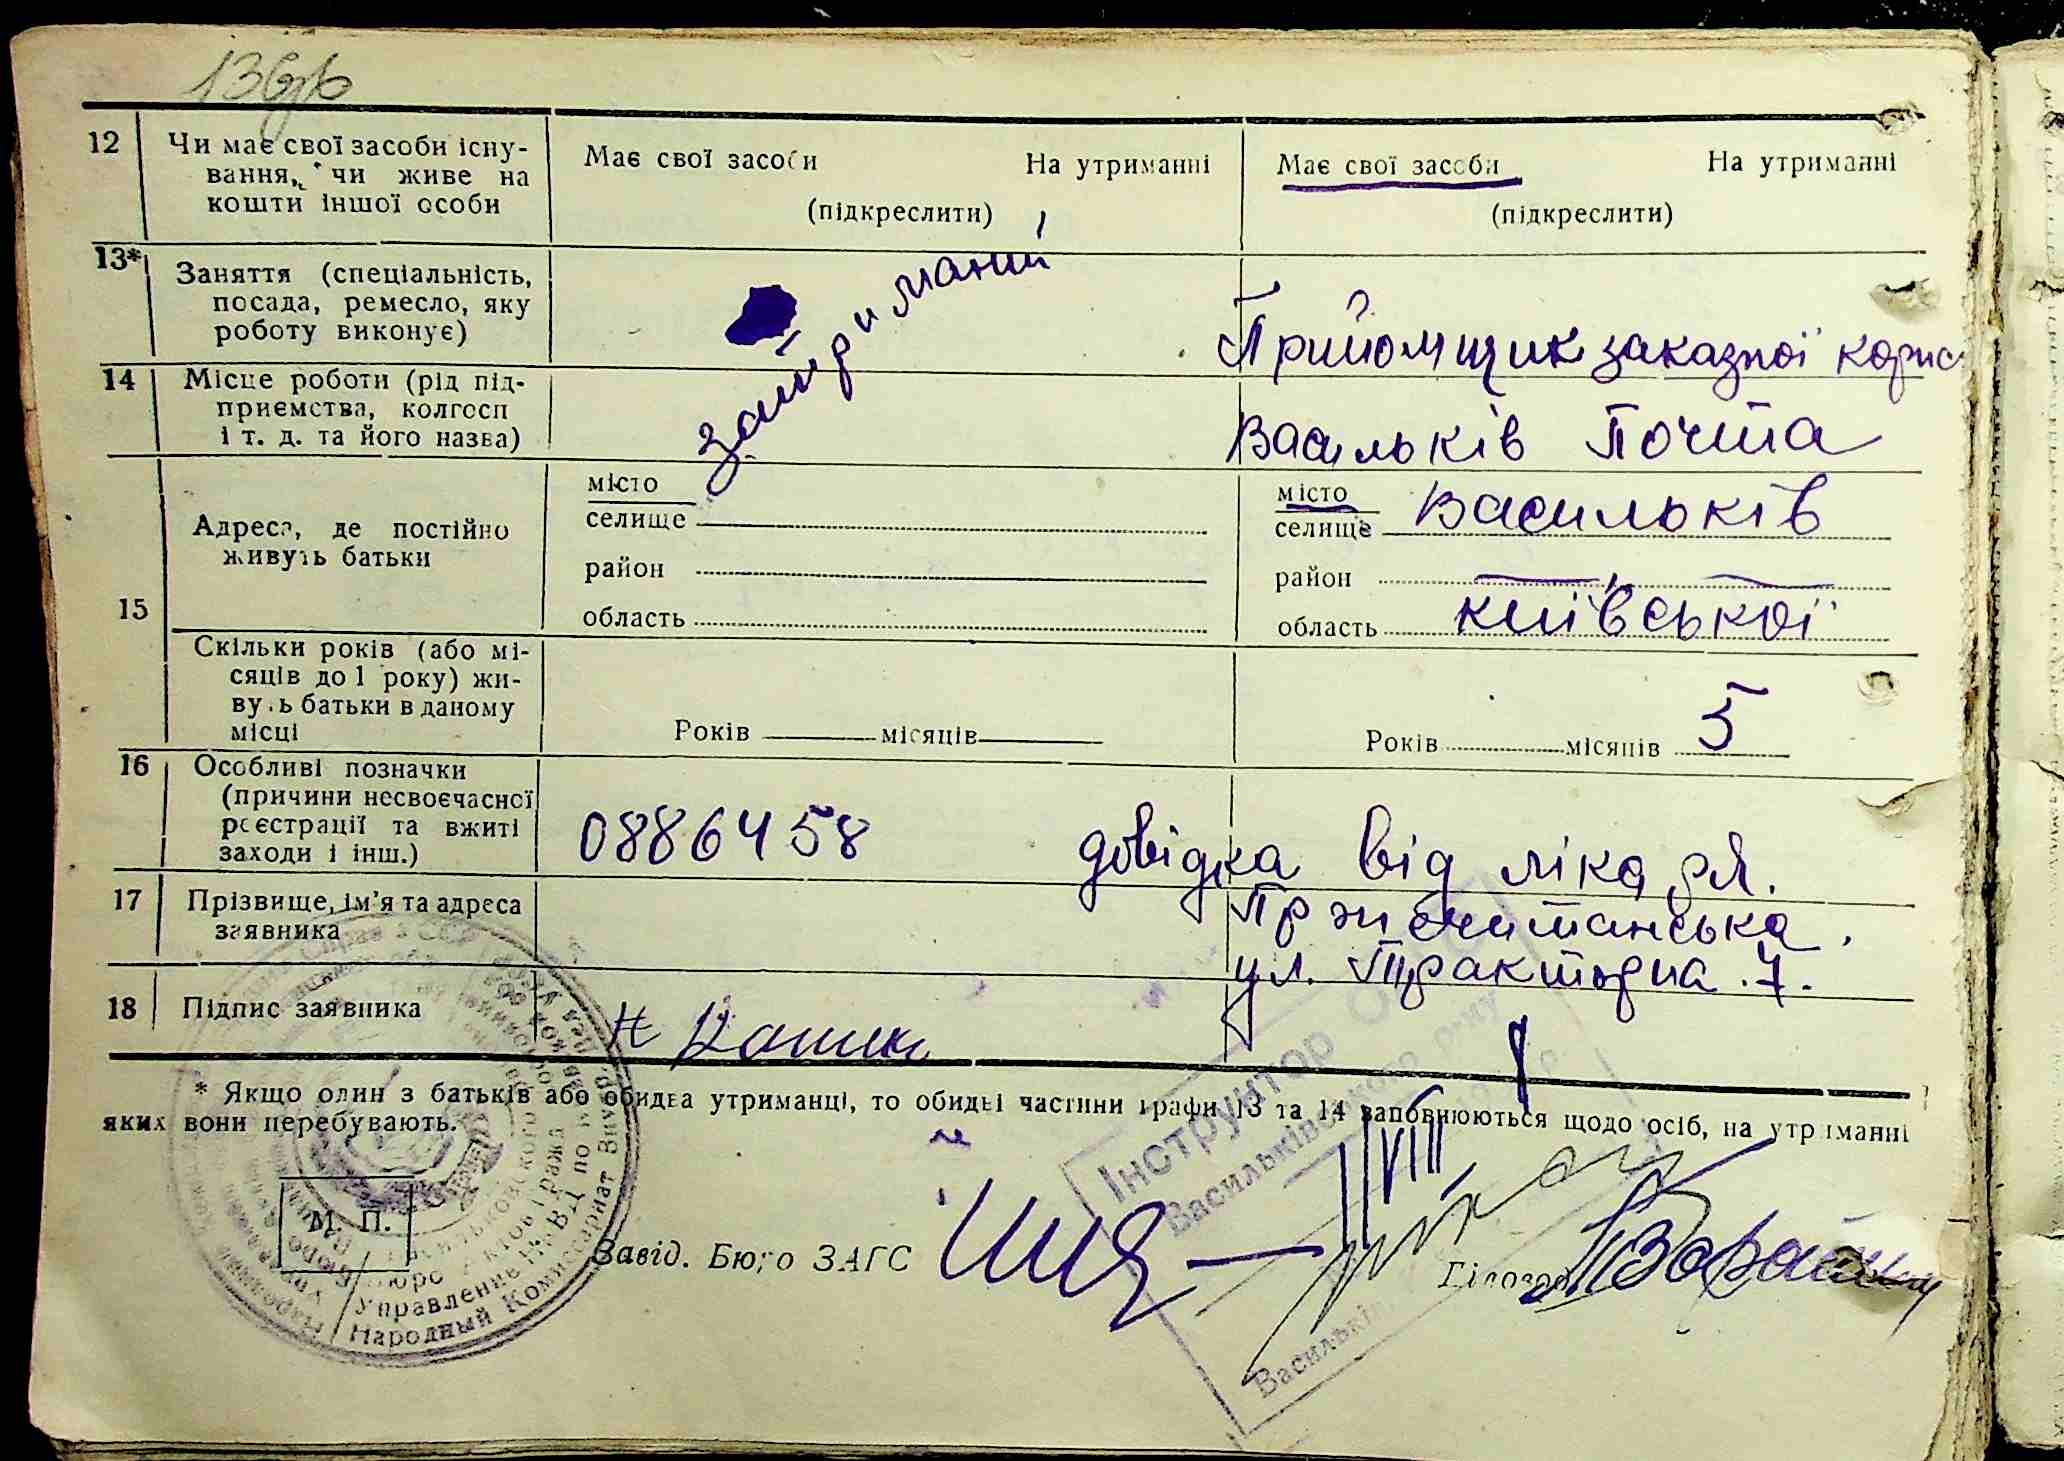 12 Чи має свої засоби існу-
вання, чи живе на
кошти іншої особи
Має свої засоби На утриманні
(підкреслити)
Має свої засоби На утриманні
(підкреслити)
13* Заняття (спеціальність,
посада, ремесло, яку
роботу виконує)
Прийомщик заказної корис
14 Місце роботи (рід під-
приємства, колгосп
і т. д. та його назва)
Васильків Почта
15 Адреса, де постійно
живуть батьки
місто
селище
район
область
місто
селище Васильків
район
область київської
Скільки років (або мі-
сяців до 1 року) жи-
вуть батьки в даному
місці
Років місяців
Років місяців 5
16 Особливі позначки
(причини несвоєчасної
реєстрації та вжиті
заходи і інш.)
0886458 довідка від лікаря.
17 Прізвище, ім'я та адреса
заявника
ул. Тракторна. 7.
18 Підпис заявника
* Якщо один з батьків або обидва утриманці, то обидві частини графи 13 та 14 заповнюються щодо осіб, на утриманні
яких вони перебувають.
Інструктор
Васильківського р-ну
М. П.
Завід. Бюро ЗАГС
Діловод
Управление НКВД по
Народный Комиссариат Внутр